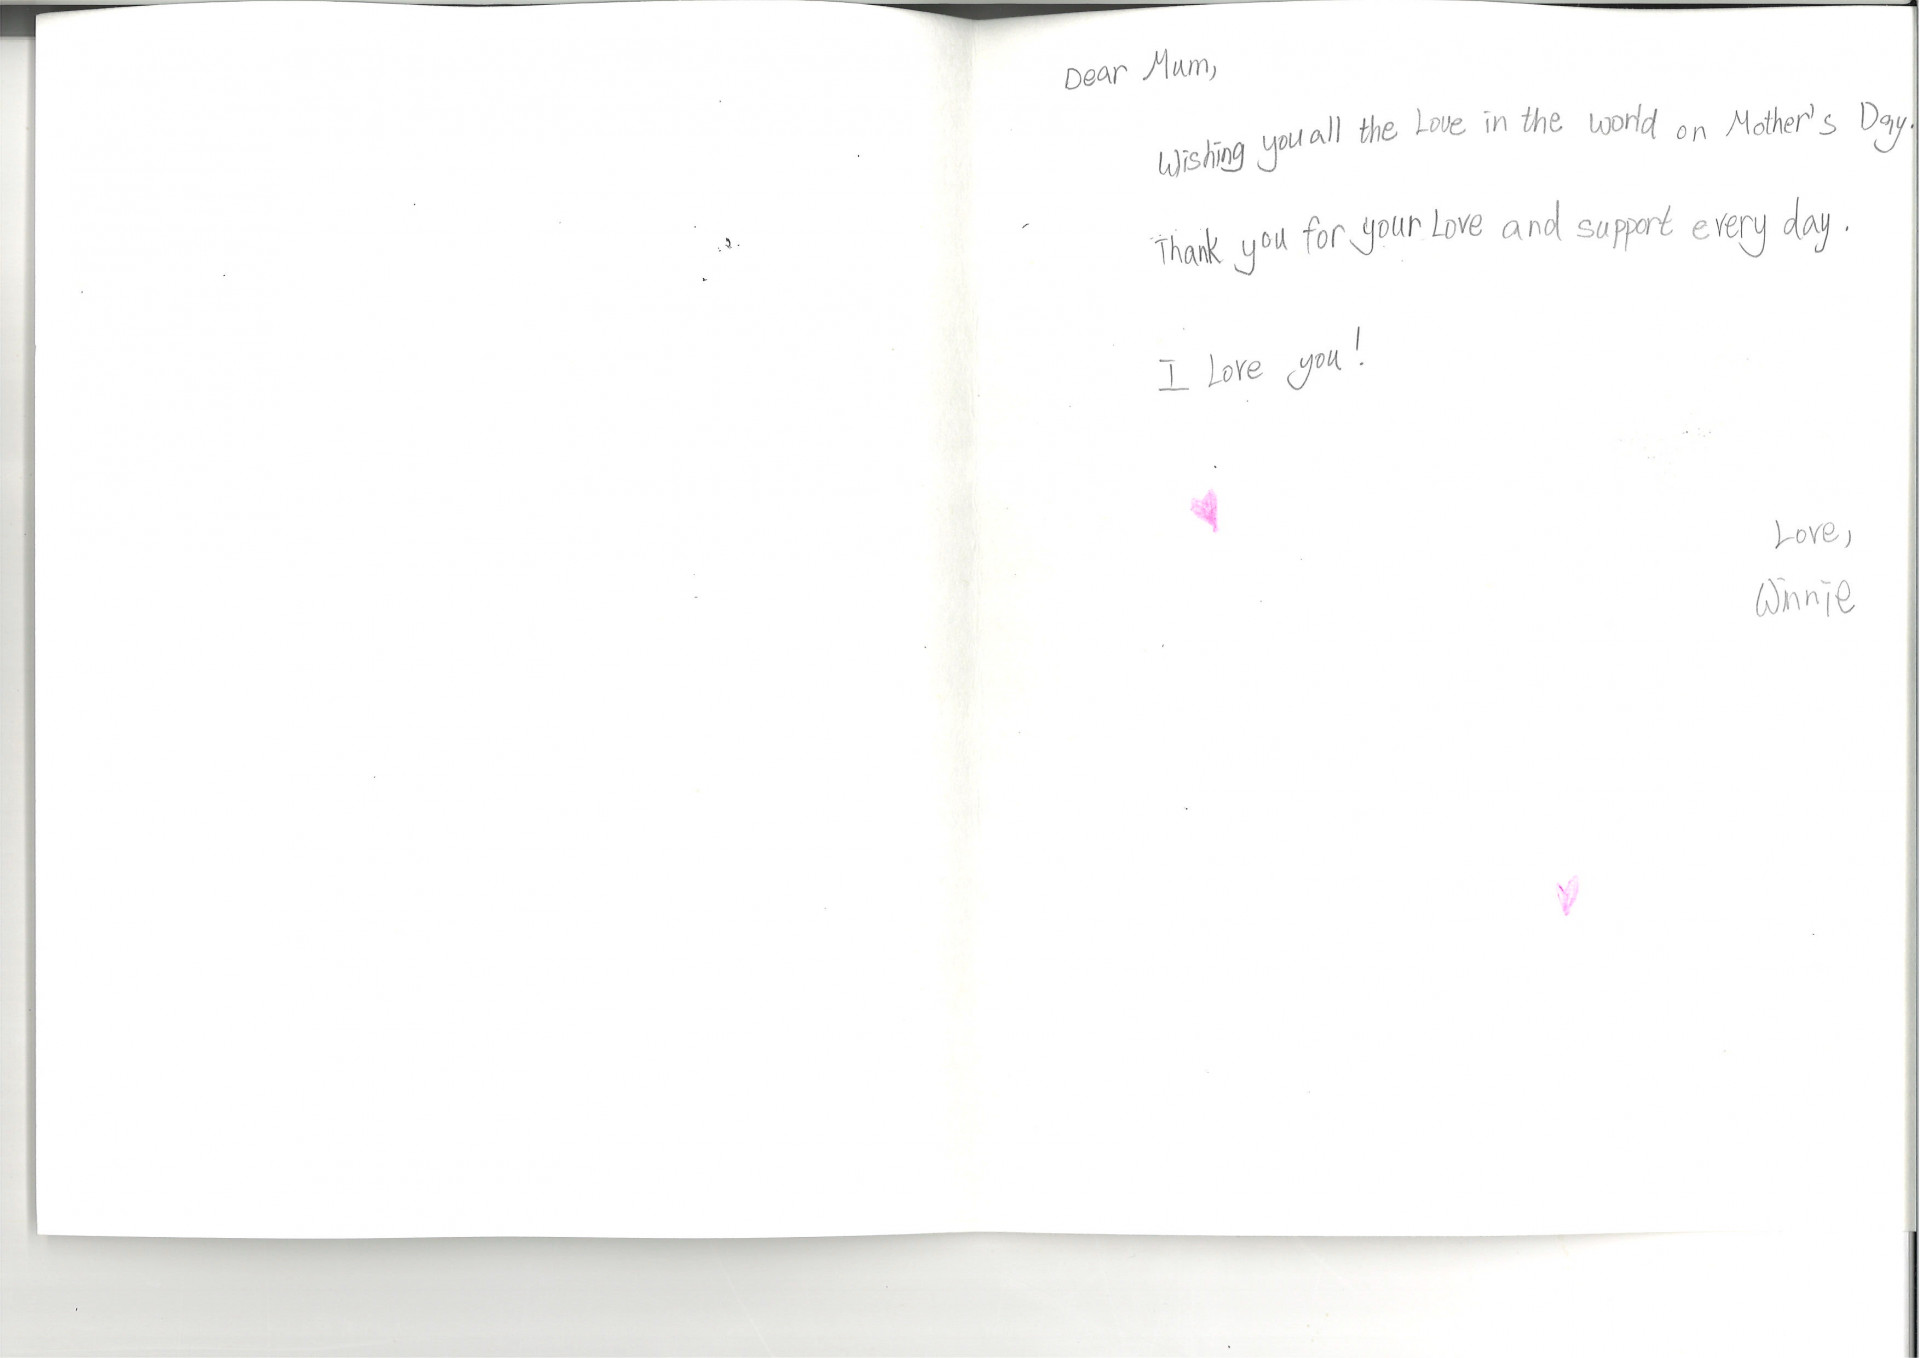 Dear Mum,
Wishing you all the Love in the world on Mother's Day.
Thank you for your Love and support every day.
I Love you!
Love,
Winnie